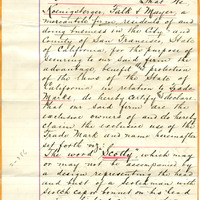 That We
Koenigsberger, Falk & Mayer, a
mercantile firm, residents of and
doing business in the City and
County of San Francisco State
of California, for the purpose of
securing to our said firm the
advantage, benefit & protection
of the laws of the State of
California in relation to Trade
Marks, do hereby certify & declare
that our said firm are the
exclusive owners of and do hereby
claim the exclusive use of the
Trade Mark and name hereinafter
set forth viz:
The word "Scotty" which may
or may not be accompanied by
a design representing the head
and bust of a Scotchman with
Scotch cap & bonnet on his head